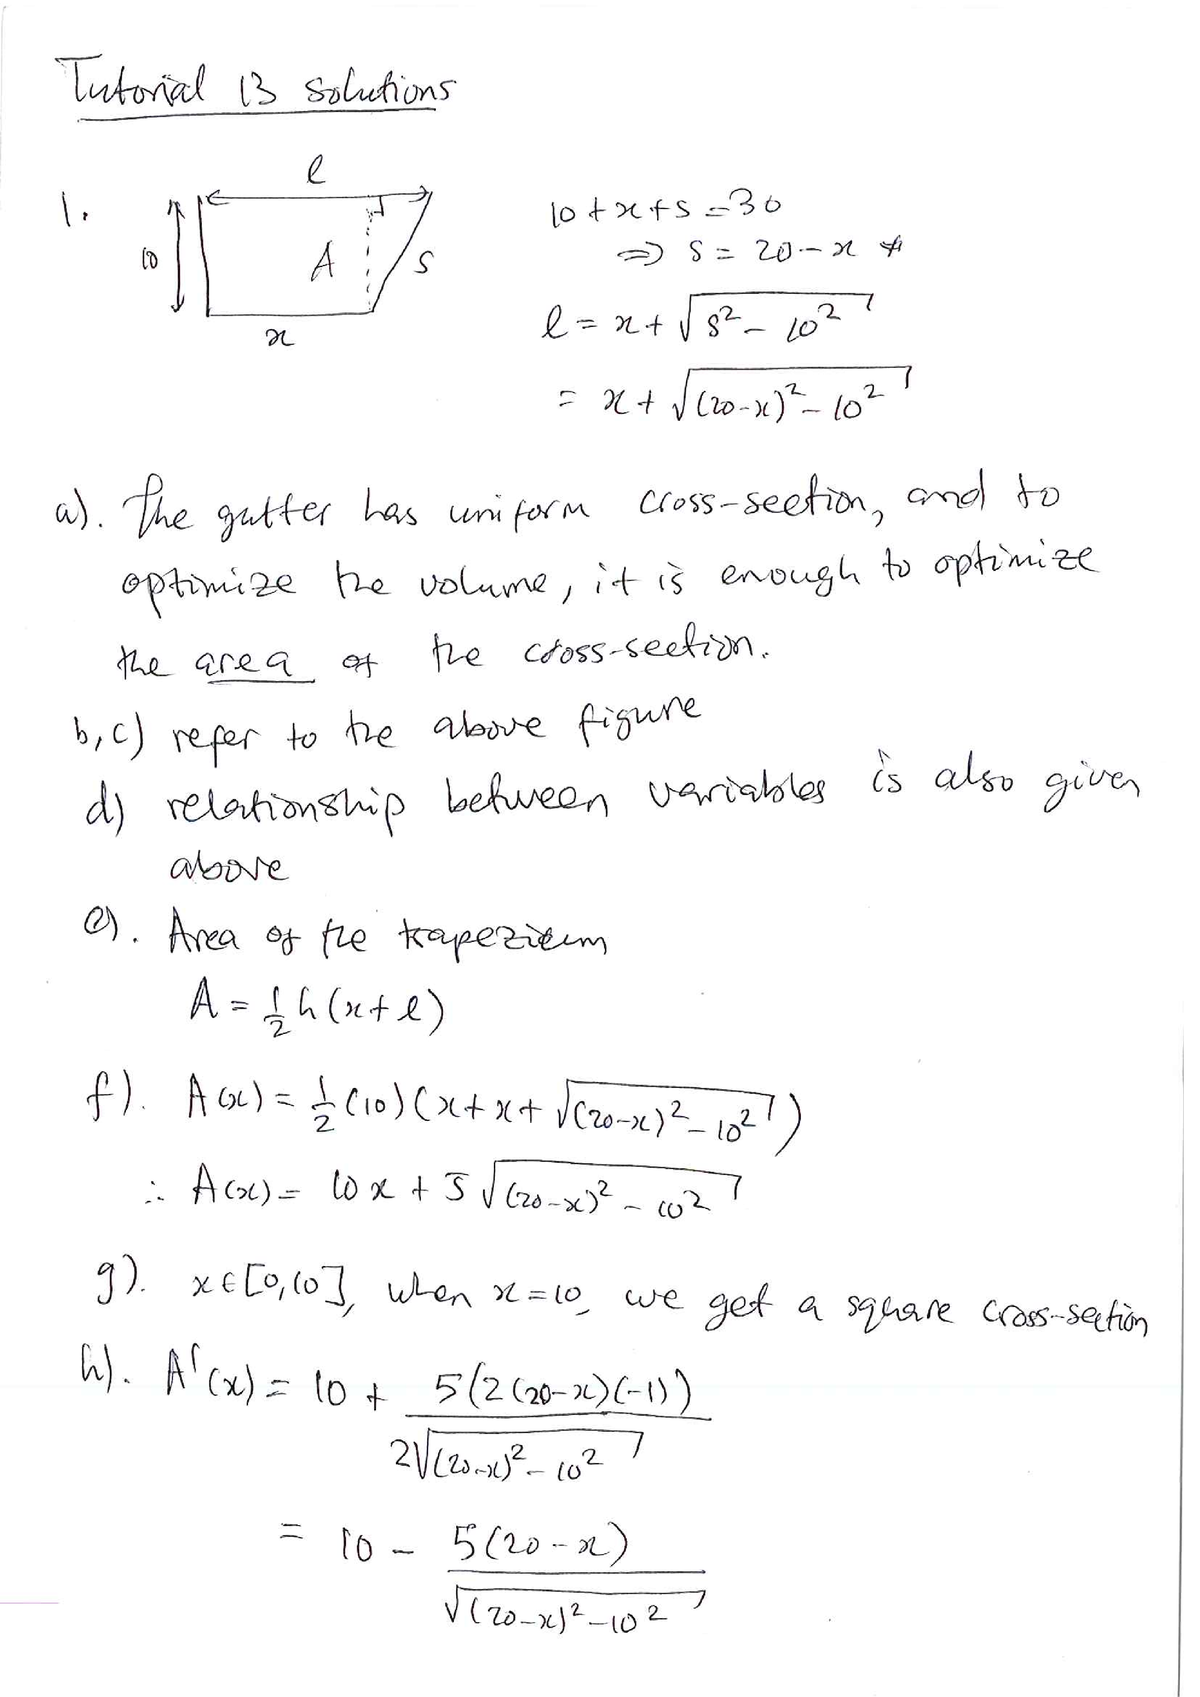 Tutorial 13 solutions
1.
l
10
A
s
x
10 + x + s = 30
⇒ s = 20 - x *
l = x + √(s² - 10²)
= x + √((20-x)² - 10²)
a). The gutter has uniform cross-section, and to
optimize the volume, it is enough to optimize
the area of the cross-section.
b,c) refer to the above figure
d) relationship between variables is also given
above
e). Area of the trapezium
A = 1/2 h (x + l)
f). A(x) = 1/2 (10) (x + x + √((20-x)² - 10²))
∴ A(x) = 10x + 5 √((20-x)² - 10²)
g). x ∈ [0,10], when x = 10, we get a square cross-section
h). A'(x) = 10 + 5(2(20-x)(-1)) / 2√((20-x)² - 10²)
= 10 - 5(20-x) / √((20-x)² - 10²)